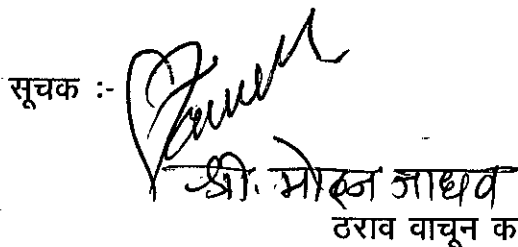 सूचक :-
श्री. मोहन जाधव
ठराव वाचून क